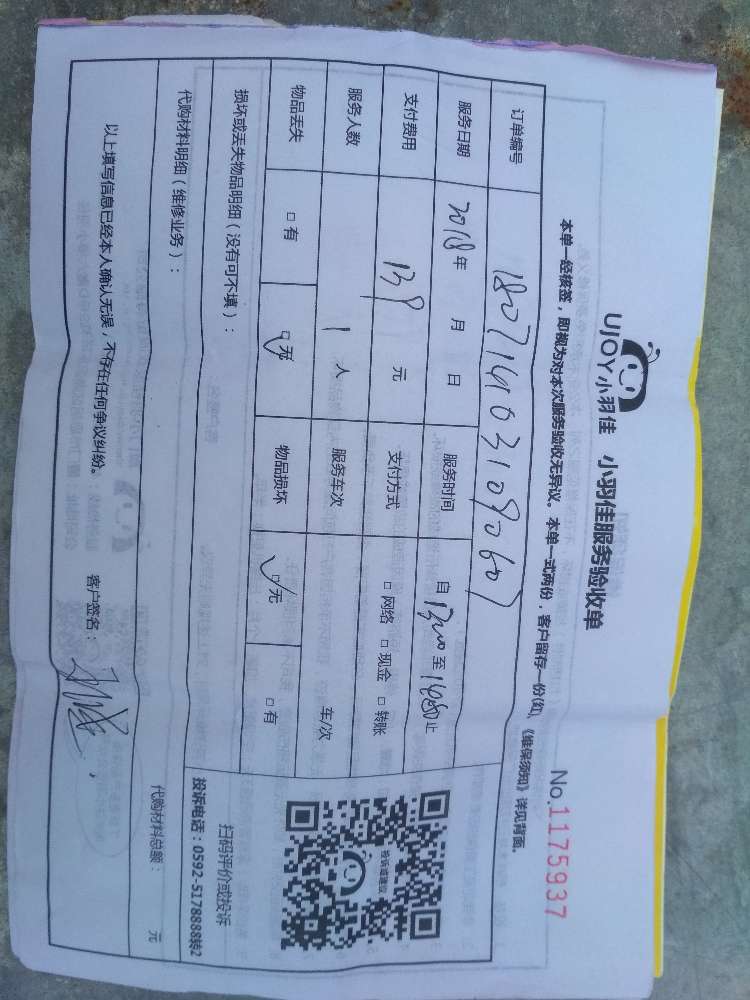 UJOY小羽佳 小羽佳服务验收单
No.1175937
本单一经核签，即视为对本次服务验收无异议。本单一式两份，客户留存一份(红)，《维保须知》详见背面。
订单编号 180714103109060
服务日期 2018年 月 日 服务时间 自1300至1480止
支付费用 139 元 支付方式 □ 网络 □ 现金 □ 转账
服务人数 1 人 服务车次 车/次
物品丢失 □ 有 □ 无 物品损坏 □ 无 □ 有
投诉或建议
扫码评价或投诉
投诉电话：0592-5178888转2
损坏或丢失物品明细（没有可不填）：
代购材料明细（维修业务）：
代购材料总额： 元
以上填写信息已经本人确认无误，不存在任何争议纠纷。 客户签名：